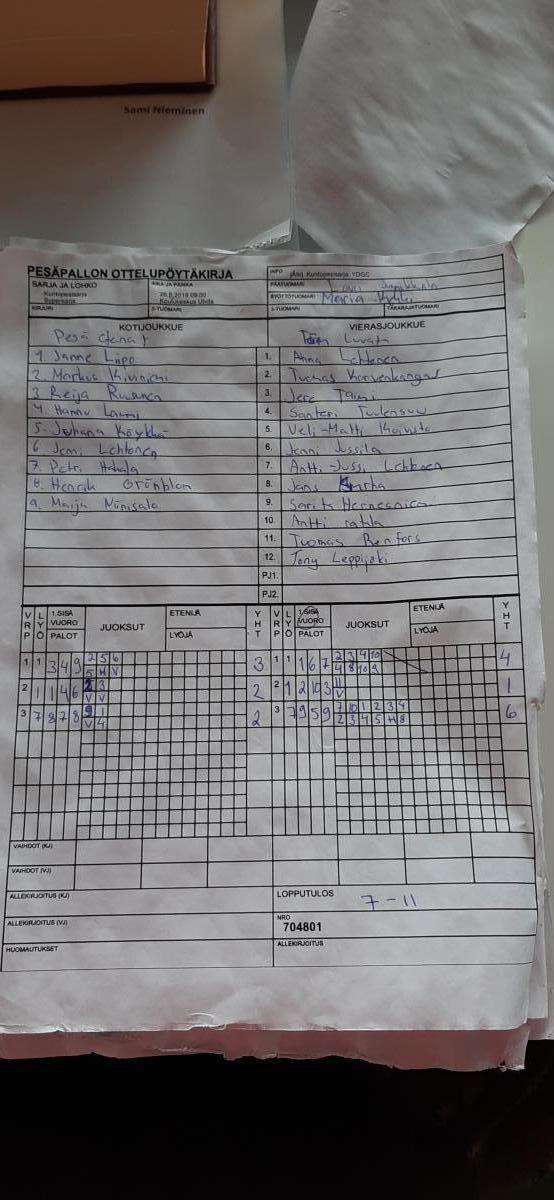 Sami Nieminen
PESÄPALLON OTTELUPÖYTÄKIRJA
INFO
YDGC
SARJA JA LOHKO
Kuntopesisarja
Supersarja
AIKA JA PAIKKA
26.8.2019 09:00
PÄÄTUOMARI
SYÖTTÖTUOMARI Maria
KIRJURI
2-TUOMARI
3-TUOMARI
TAKARAJATUOMARI
KOTIJOUKKUE
VIERASJOUKKUE
Pesä
1. Janne Liipo
2. Markus Kiviniemi
3 Reija
4. Hannu Lammi
5. Juhana Köykkä
6 Jemi Lehtonen
7. Petri Hakala
8. Henrik Grönblom
9. Maiju Niinisalo
1. Anna Lehtonen
2. Tuomas Korvenkangas
3. Jere Taimi
4. Santeri
5. Veli-Matti Koivisto
6. Jenni Jussila
7. Antti-Jussi Lehtonen
8.
9.
10. Antti
11. Tuomas Renfors
12. Tony Leppijoki
PJ1.
PJ2.
VRP LYÖ 1.SISÄ VUORO PALOT JUOKSUT ETENIJÄ LYÖJÄ YHT
VRP LYÖ 1.SISÄ VUORO PALOT JUOKSUT ETENIJÄ LYÖJÄ YHT
1 1 3 4 9 2 5 6 3
5 H V
1 1 1 6 7 2 3 4 10 4
4 8 10 9
2 1 1 4 6 3 2
V V
2 1 2 10 3 11 1
V
3 7 8 7 8 9 1 2
V 4
3 7 9 5 9 7 10 1 2 3 4 6
2 3 4 5 H 8
VAIHDOT (KJ)
VAIHDOT (VJ)
ALLEKIRJOITUS (KJ)
LOPPUTULOS 7 - 11
ALLEKIRJOITUS (VJ)
NRO
704801
HUOMAUTUKSET
ALLEKIRJOITUS